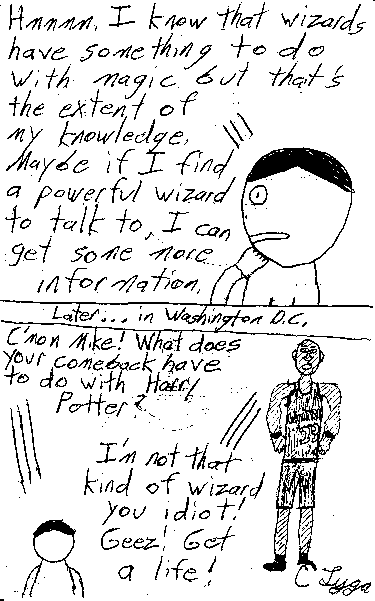 Hmmmm, I know that wizards
have something to do
with magic but that's
the extent of
my knowledge.
Maybe if I find
a powerful wizard
to talk to, I can
get some more
information.
Later... in Washington D.C.
C'mon Mike! What does
your comeback have
to do with Harry
Potter?
I'm not that
kind of wizard
you idiot!
Geez! Get
a life!